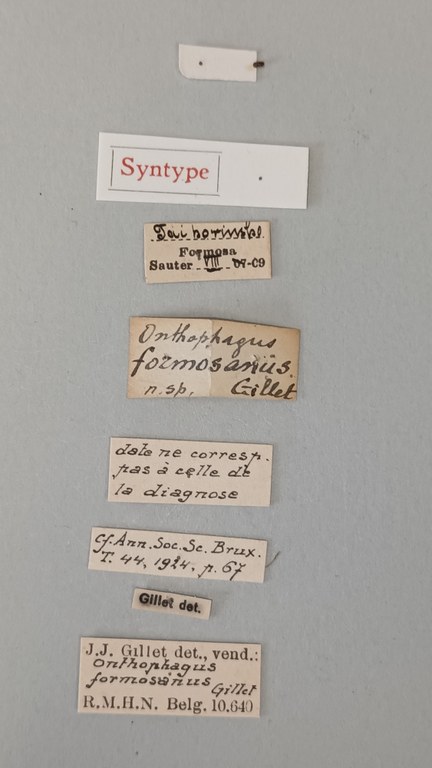 Syntype
Taihorinsho
Formosa
Sauter VIII 07-09
Onthophagus
formosanus.
n.sp. Gillet
date ne corresp.
pas à celle de
la diagnose
cf. Ann. Soc. Sc. Brux.
T. 44, 1924, p. 67
Gillet det.
J.J. Gillet det., vend.:
Onthophagus
formosanus Gillet
R.M.H.N. Belg. 10.640